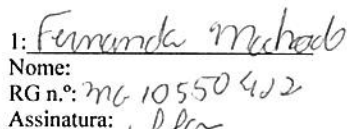 1: Fernanda Machado
Nome:
RG n.º: MG 10550412
Assinatura: